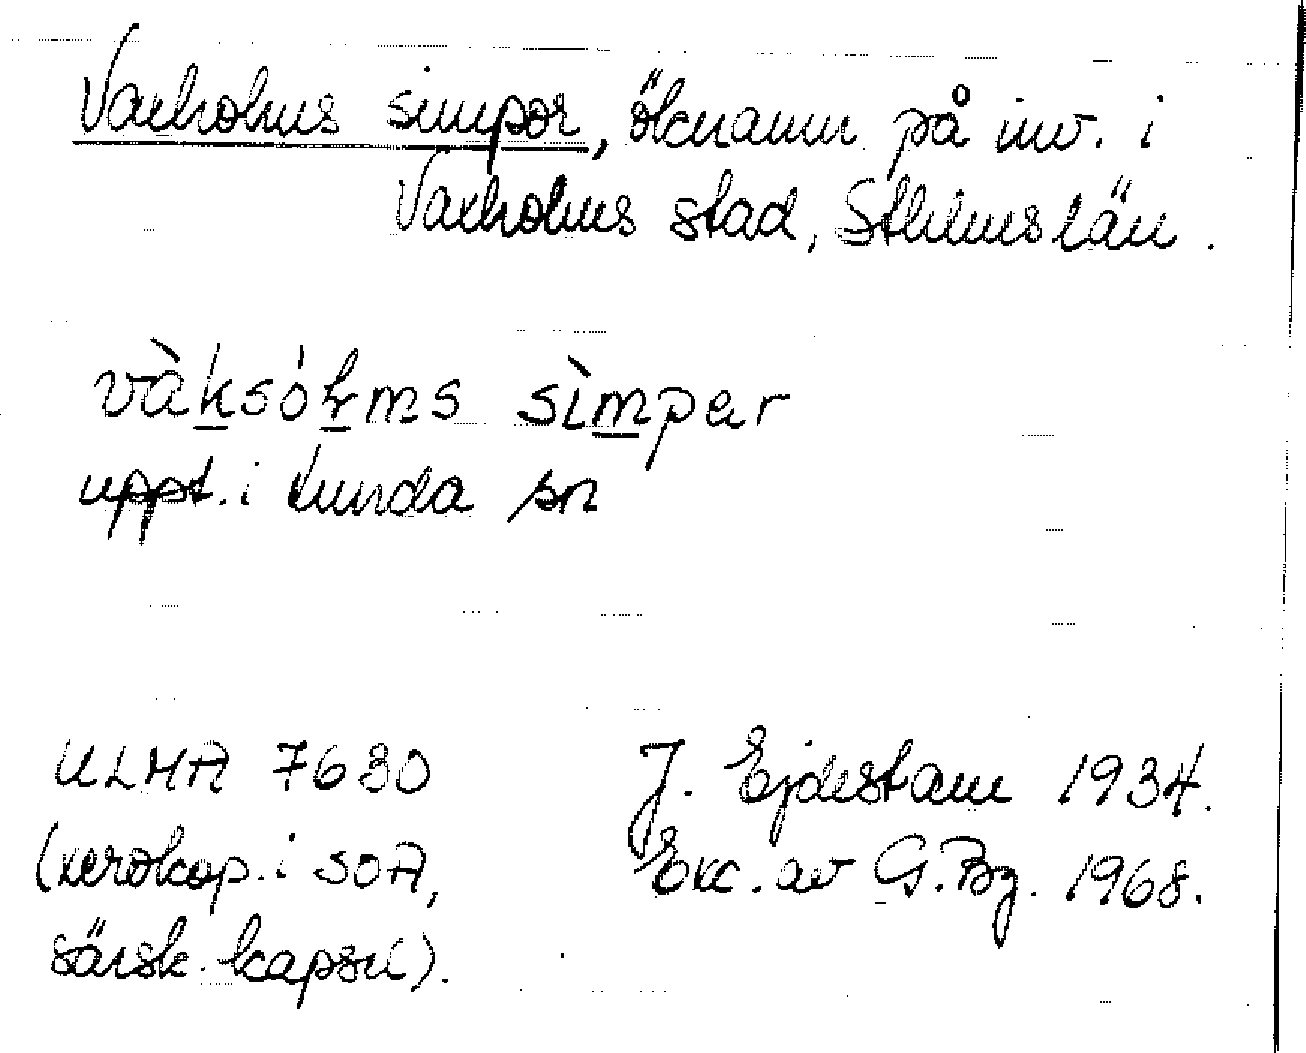 Vaxholms simpor, öknamn på inv. i
Vaxholms stad, Sthlms län.
vàksółms sìmpar
uppt. i Lunda sn
ULMA 7630 J. Ejdestam 1934.
(xerokop. i SOA, Exc. av G. Bg. 1968.
särsk. kapsel).